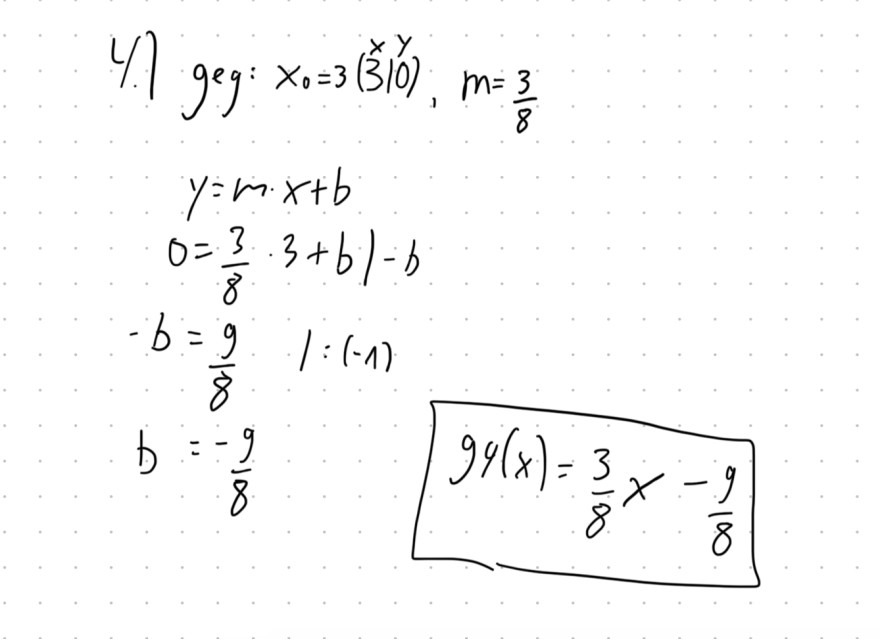 4.) geg: x₀=3 (3|0), m=3/8
x y
y=m·x+b
0=3/8·3+b |-b
-b=9/8 |:(-1)
b=-9/8
g4(x)=3/8x-9/8